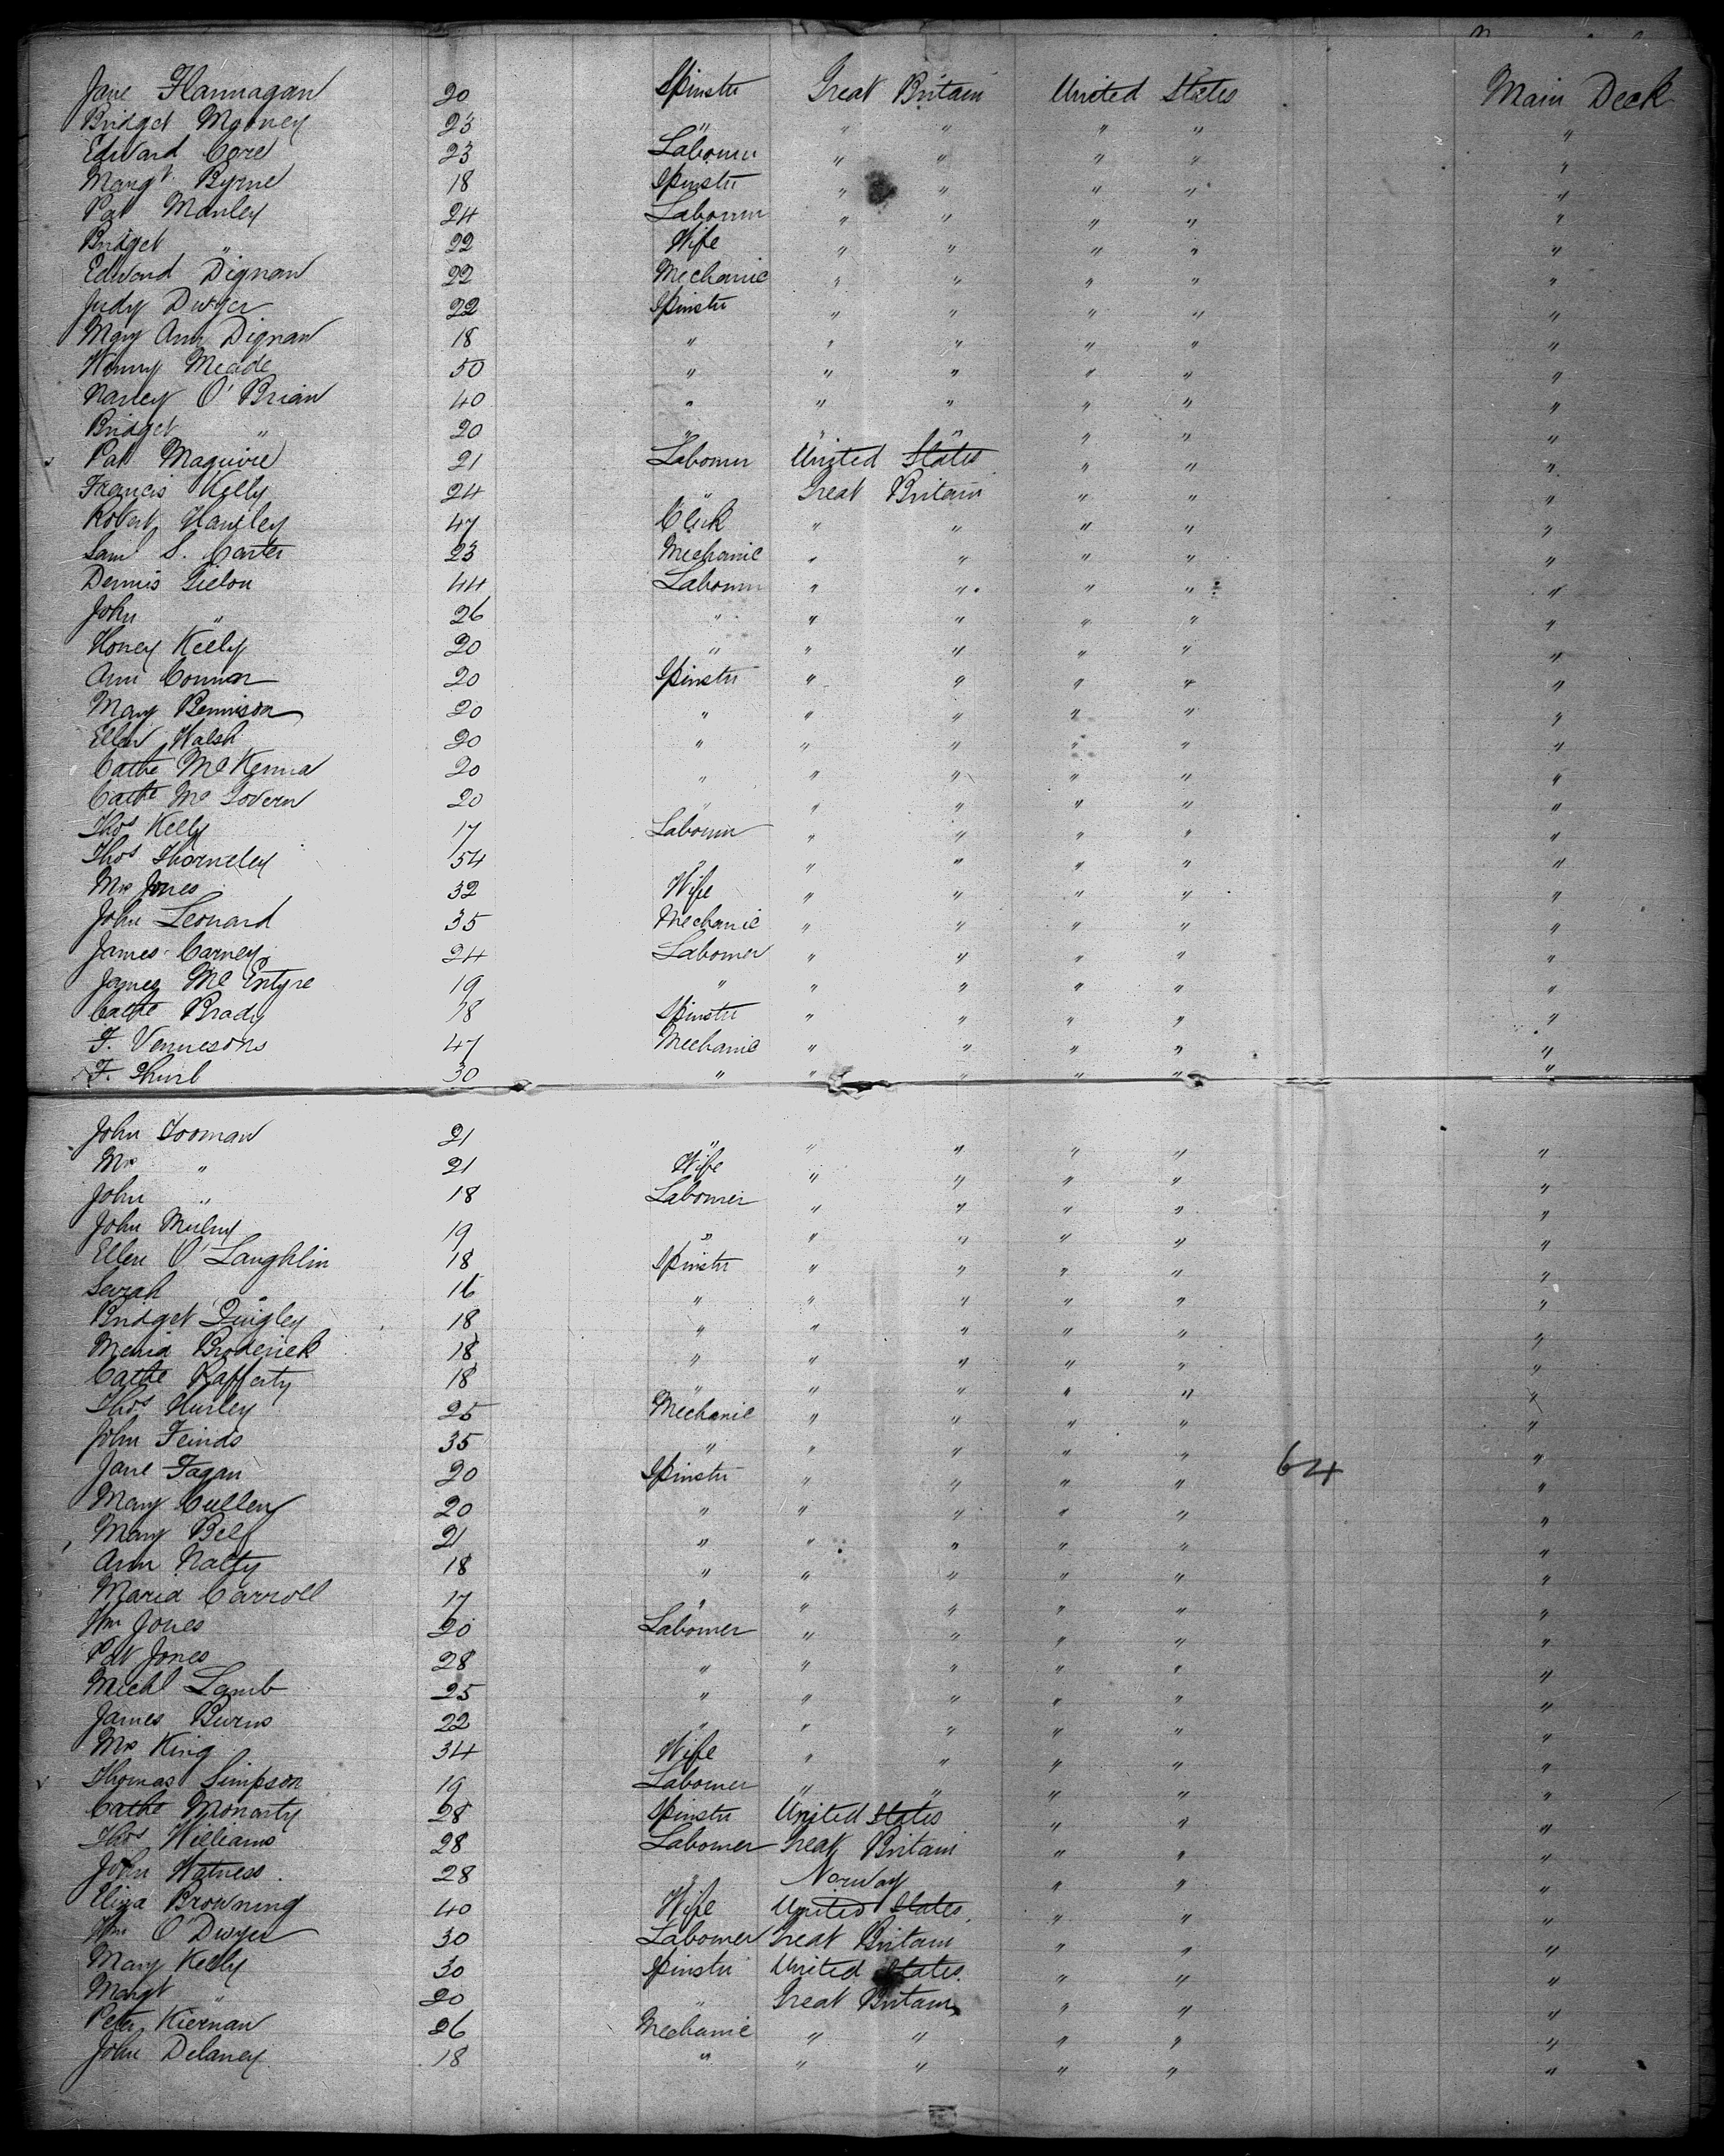 Jane Flannagan 20 Spinster Great Britain United States Main Deck
Bridget Mooney 23 " " " " " "
Edward Core 23 Labourer " " " " "
Margt Byrne 18 Spinster " " " " "
Pat Manley 24 Labourer " " " " "
Bridget " 22 Wife " " " " "
Edward Dignan 22 Mechanic " " " " "
Judy Dwyer 22 Spinster " " " " "
Mary Ann Dignan 18 " " " " " "
Winny Meade 50 " " " " " "
Nancy O'Brian 40 " " " " " "
Bridget " 20 " " " " " "
Pat Maguire 21 Labourer United States " " "
Francis Kelly 24 " Great Britain " " "
Robert Hanley 47 Clerk " " " " "
Saml S. Carter 23 Mechanic " " " " "
Dennis Gielon 44 Labourer " " " " "
John " 26 " " " " " "
Honey Kelly 20 " " " " " "
Ann Connor 20 Spinster " " " " "
Mary Bennison 20 " " " " " "
Ellen Walsh 20 " " " " " "
Cathe McKenna 20 " " " " " "
Cathe McGovern 20 " " " " " "
Thos Kelly 17 Labourer " " " " "
Thos Thorneley 54 " " " " " "
Mrs Jones 32 Wife " " " " "
John Leonard 35 Mechanic " " " " "
James Carney 24 Labourer " " " " "
James McEntyre 19 " " " " " "
Cathe Brady 18 Spinster " " " " "
F. Vennesons 47 Mechanic " " " " "
F. 30 " " " " " "
John Tooman 21 " " " " " "
Mrs " 21 Wife " " " " "
John " 18 Labourer " " " " "
John 19 " " " " " "
Ellen O'Laughlin 18 Spinster " " " " "
Sarah " 16 " " " " " "
Bridget Quigley 18 " " " " " "
Maria Broderick 18 " " " " " "
Cathe Rafferty 18 " " " " " "
Thos Hurley 25 Mechanic " " " " "
John Feinds 35 " " " " " "
Jane Fagan 20 Spinster " " " " 64 "
Mary Cullen 20 " " " " " "
Mary Bell 21 " " " " " "
Ann Natty 18 " " " " " "
Maria Carroll 17 " " " " " "
Wm Jones 20 Labourer " " " " "
Pat Jones 28 " " " " " "
Michl Lamb 25 " " " " " "
James Burns 22 " " " " " "
Mrs King 34 Wife " " " " "
Thomas Simpson 19 Labourer " " " " "
Cathe Moriarty 28 Spinster United States " " "
Thos Williams 28 Labourer Great Britain " " "
John Watness 28 " Norway " " "
Eliza Browning 40 Wife United States " " "
Wm O'Dwyer 30 Labourer Great Britain " " "
Mary Kelly 30 Spinster United States " " "
Margt " 20 " Great Britain " " "
Peter Kiernan 26 Mechanic " " " " "
John Delaney 18 " " " " " "